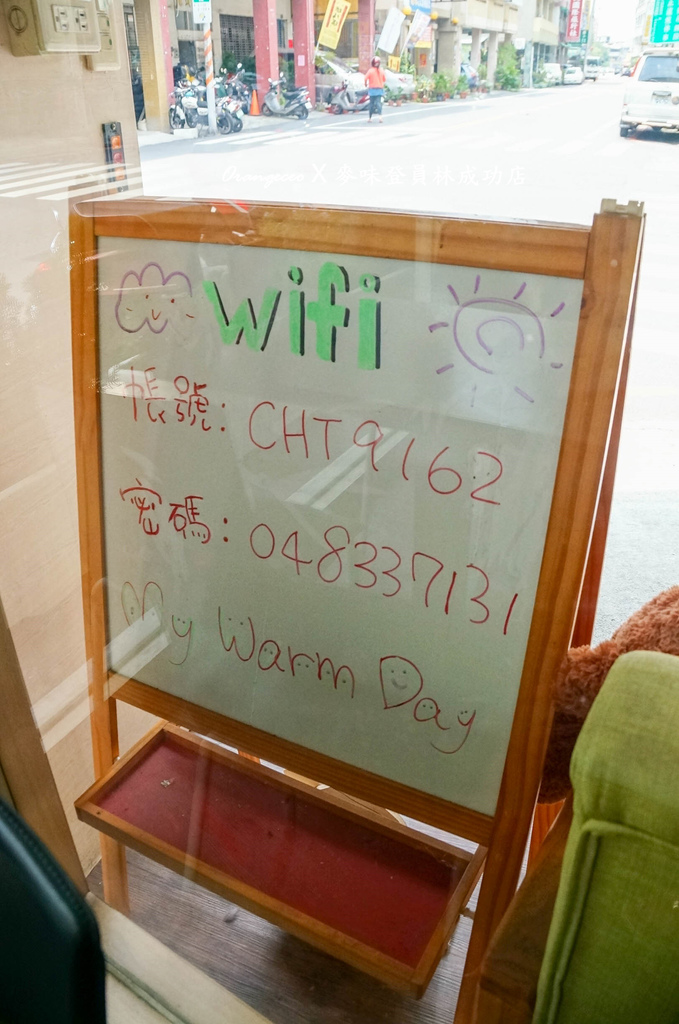 Orangecco X 麥味登員林成功店
wifi
帳號: CHT9162
密碼: 048337131
My Warm Day